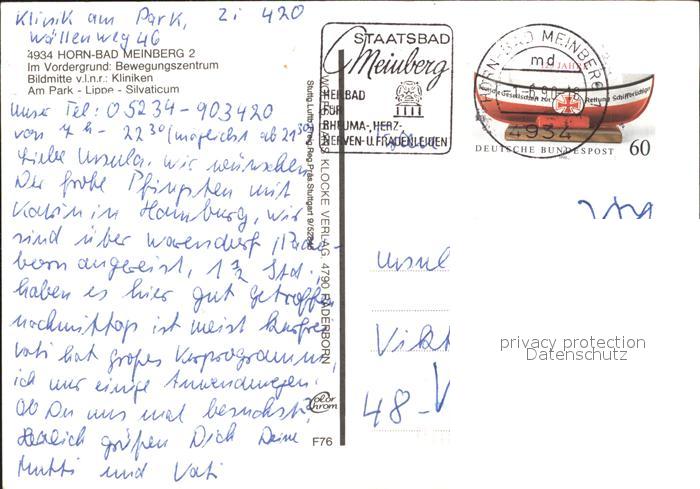 Klinik am Park, Zi 420
Wällenweg 46
4934 HORN-BAD MEINBERG 2
Im Vordergrund: Bewegungszentrum
Bildmitte v.l.n.r.: Kliniken
Am Park - Lippe - Silvaticum
Unser Tel: 05234-903420
von 7 h - 22 30 (möglichst ab 21 30)
Liebe Ursula, wir wünschen
Dir frohe Pfingsten mit
Katrin in Hamburg, wir
sind über Warendorf, Pader-
born angereist, 1 3/4 Std.,
haben es hier gut getroffen
nachmittags ist meist kurfrei
Vati hat großes Kurprogramm,
ich nur einige Anwendungen.
Ob Du uns mal besuchst?
Herzlich grüßen Dich Deine
Mutti und Vati
STAATSBAD
Meinberg
HEILBAD
FÜR
RHEUMA-, HERZ-
NERVEN- U. FRAUENLEIDEN
HORN-BAD MEINBERG 1
md
-1.-6.90-18
4934
125 JAHRE
Deutsche Gesellschaft zur Rettung Schiffbrüchiger
DEUTSCHE BUNDESPOST 60
KLOCKE VERLAG, 4790 PADERBORN
Luftbild Freig. Reg. Präs. Stuttgart
Color
chrom
F76
Ursul
Vikt
48-V
privacy protection
Datenschutz